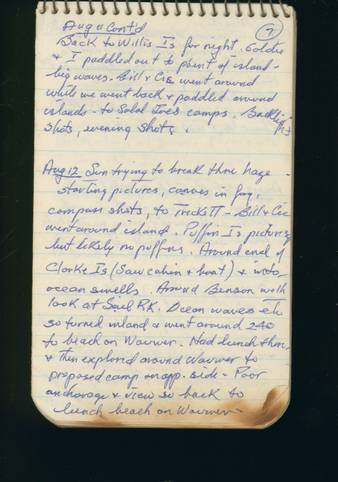 Aug 11 Cont'd
7
Back to Willis Is for night. Goldie
& I paddled out to point of island -
big waves. Bill & Cec went around
while we went back & paddled around
islands - to Joe's camps. Backlight
shots, evening shots.
Aug 12 Sun trying to break thru haze -
starting pictures, canoes in fog,
compass shots, to - Bill & Cec
went around island. Puffin Is pictures
but likely no puffins. Around end of
Clarke Is (Saw cabin & boat) & into
ocean swells. Around Benson with
look at Sail RK. Ocean waves etc
so turned inland & went around 240
to beach on Wouwer. Had lunch there,
& then explored around Wouwer to
proposed camp on opp. side - Poor
anchorage & view so back to
lunch beach on Wouwer -